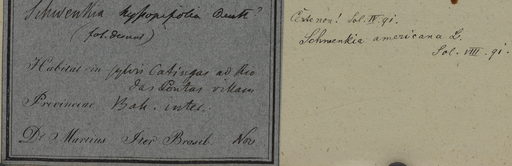 Schwenkia hyssopifolia Benth?
(fol. decad)
Habitat in sylvis Catingas ad Rio
das Contas villam
Provinciae Bah. inter.
Dr Martius Iter Brasil. Nov
Certe non! Sol. IV. 91.
Schwenkia americana L.
Sol. VIII. 91.